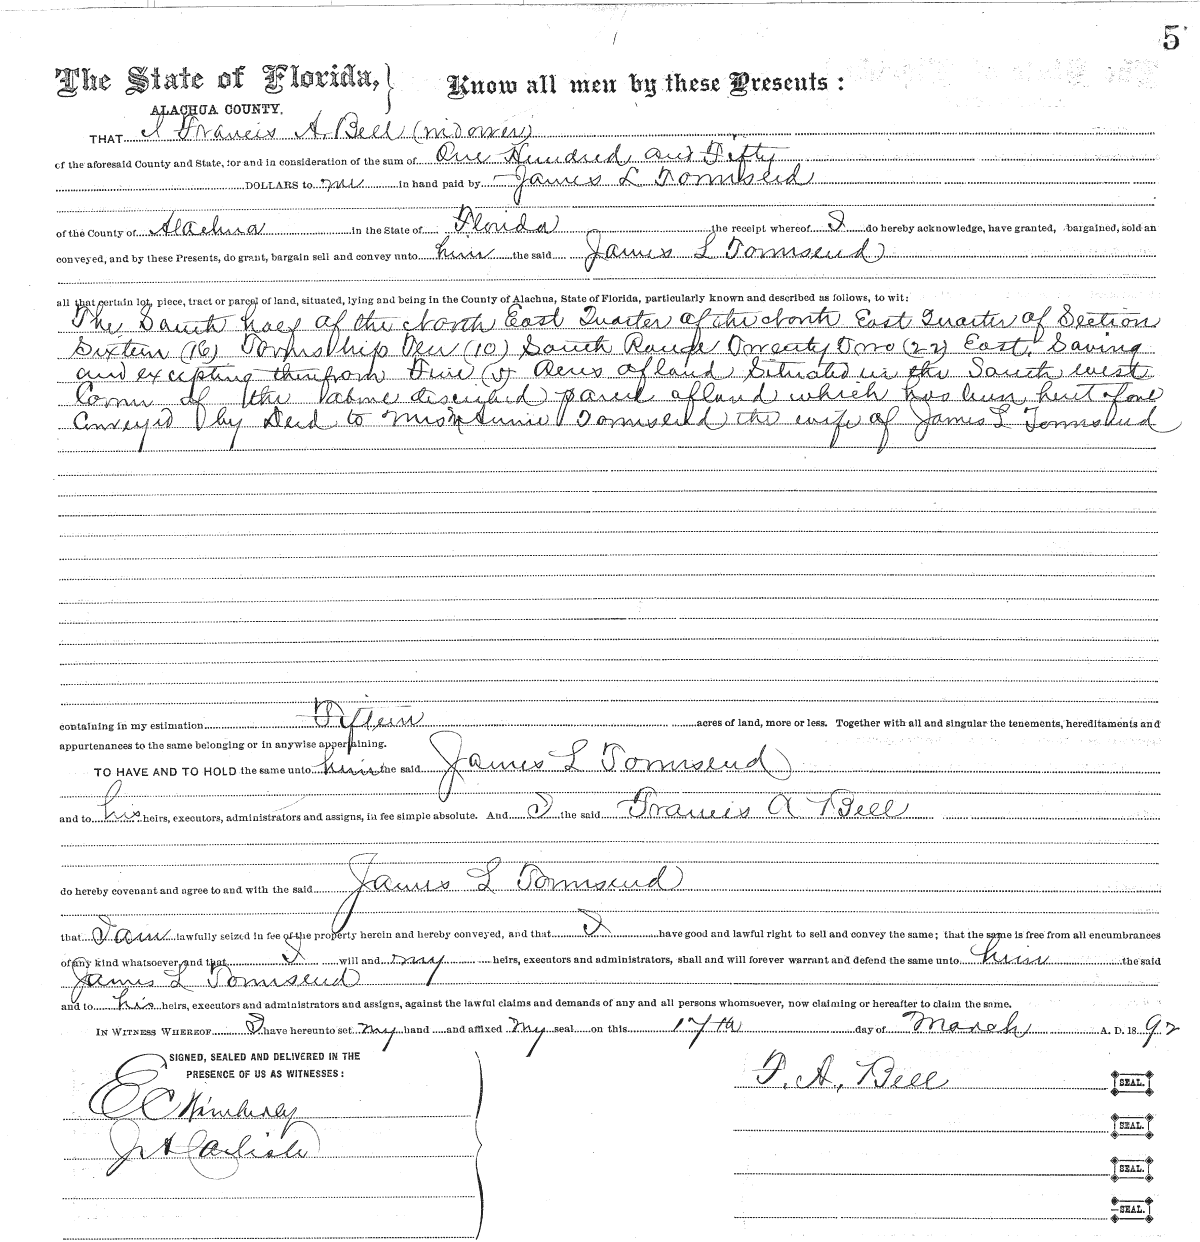 5
The State of Florida,
Know all men by these Presents:
ALACHUA COUNTY.
THAT I Francis A. Bell (widower)
of the aforesaid County and State, for and in consideration of the sum of One Hundred and Fifty
DOLLARS to me in hand paid by James L Townsend
of the County of Alachua in the State of Florida the receipt whereof I do hereby acknowledge, have granted, bargained, sold an
conveyed, and by these Presents, do grant, bargain sell and convey unto him the said James L Townsend
all that certain lot, piece, tract or parcel of land, situated, lying and being in the County of Alachua, State of Florida, particularly known and described as follows, to wit:
The South half of the North East Quarter of the North East Quarter of Section
Sixteen (16) Township Ten (10) South Range Twenty Two (22) East. Saving
and excepting therefrom Five (5) Acres of land Situated in the South west
Corner of the above discribed parcel of land which has been heretofore
Conveyed by Deed to Mrs Annie Townsend the wife of James L Townsend
containing in my estimation Fifteen acres of land, more or less. Together with all and singular the tenements, hereditaments and
appurtenances to the same belonging or in anywise appertaining.
TO HAVE AND TO HOLD the same unto him the said James L Townsend
and to his heirs, executors, administrators and assigns, in fee simple absolute. And I the said Francis A Bell
do hereby covenant and agree to and with the said James L Townsend
that I am lawfully seized in fee of the property herein and hereby conveyed, and that I have good and lawful right to sell and convey the same; that the same is free from all encumbrances
of any kind whatsoever, and that I will and my heirs, executors and administrators, shall and will forever warrant and defend the same unto him the said
James L Townsend
and to his heirs, executors and administrators and assigns, against the lawful claims and demands of any and all persons whomsoever, now claiming or hereafter to claim the same.
IN WITNESS WHEREOF I have hereunto set my hand and affixed my seal on this 17th day of March A. D. 1892
SIGNED, SEALED AND DELIVERED IN THE
PRESENCE OF US AS WITNESSES:
F. A. Bell SEAL.
E C Wimberly
SEAL.
J A Carlisle
SEAL.
SEAL.